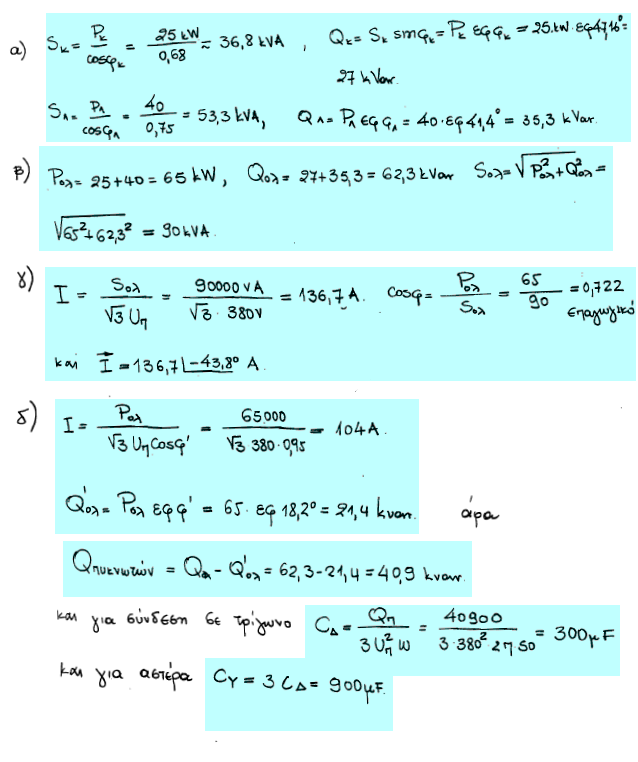 α) S_κ = P_κ / cosφ_κ = 25 kW / 0,68 ≈ 36,8 kVA , Q_κ = S_κ sinφ_κ = P_κ εφφ_κ = 25.kW.εφ47,16° =
27 kVar.
S_Λ = P_Λ / cosφ_Λ = 40 / 0,75 = 53,3 kVA, Q_Λ = P_Λ εφφ_Λ = 40·εφ41,4° = 35,3 kVar.
β) P_ολ = 25+40 = 65 kW, Q_ολ = 27+35,3 = 62,3 kVar S_ολ = √(P²_ολ + Q²_ολ) =
√(65²+62,3²) = 90 kVA.
γ) I = S_ολ / √3 U_π = 90000 VA / √3 · 380V = 136,7 A. cosφ = P_ολ / S_ολ = 65 / 90 = 0,722
επαγωγικό
και I⃗ = 136,7∠-43,8° A.
δ) I = P_ολ / √3 U_π cosφ' = 65000 / √3 380·0,95 = 104 A.
Q'_ολ = P_ολ εφφ' = 65· εφ 18,2° = 21,4 kvar. άρα
Q_πυκνωτών = Q_ολ - Q'_ολ = 62,3-21,4 = 40,9 kvar.
και για σύνδεση σε τρίγωνο C_Δ = Q_π / 3 U²_π ω = 40900 / 3·380² 2π·50 = 300μF
και για αστέρα C_Y = 3 C_Δ = 900μF.